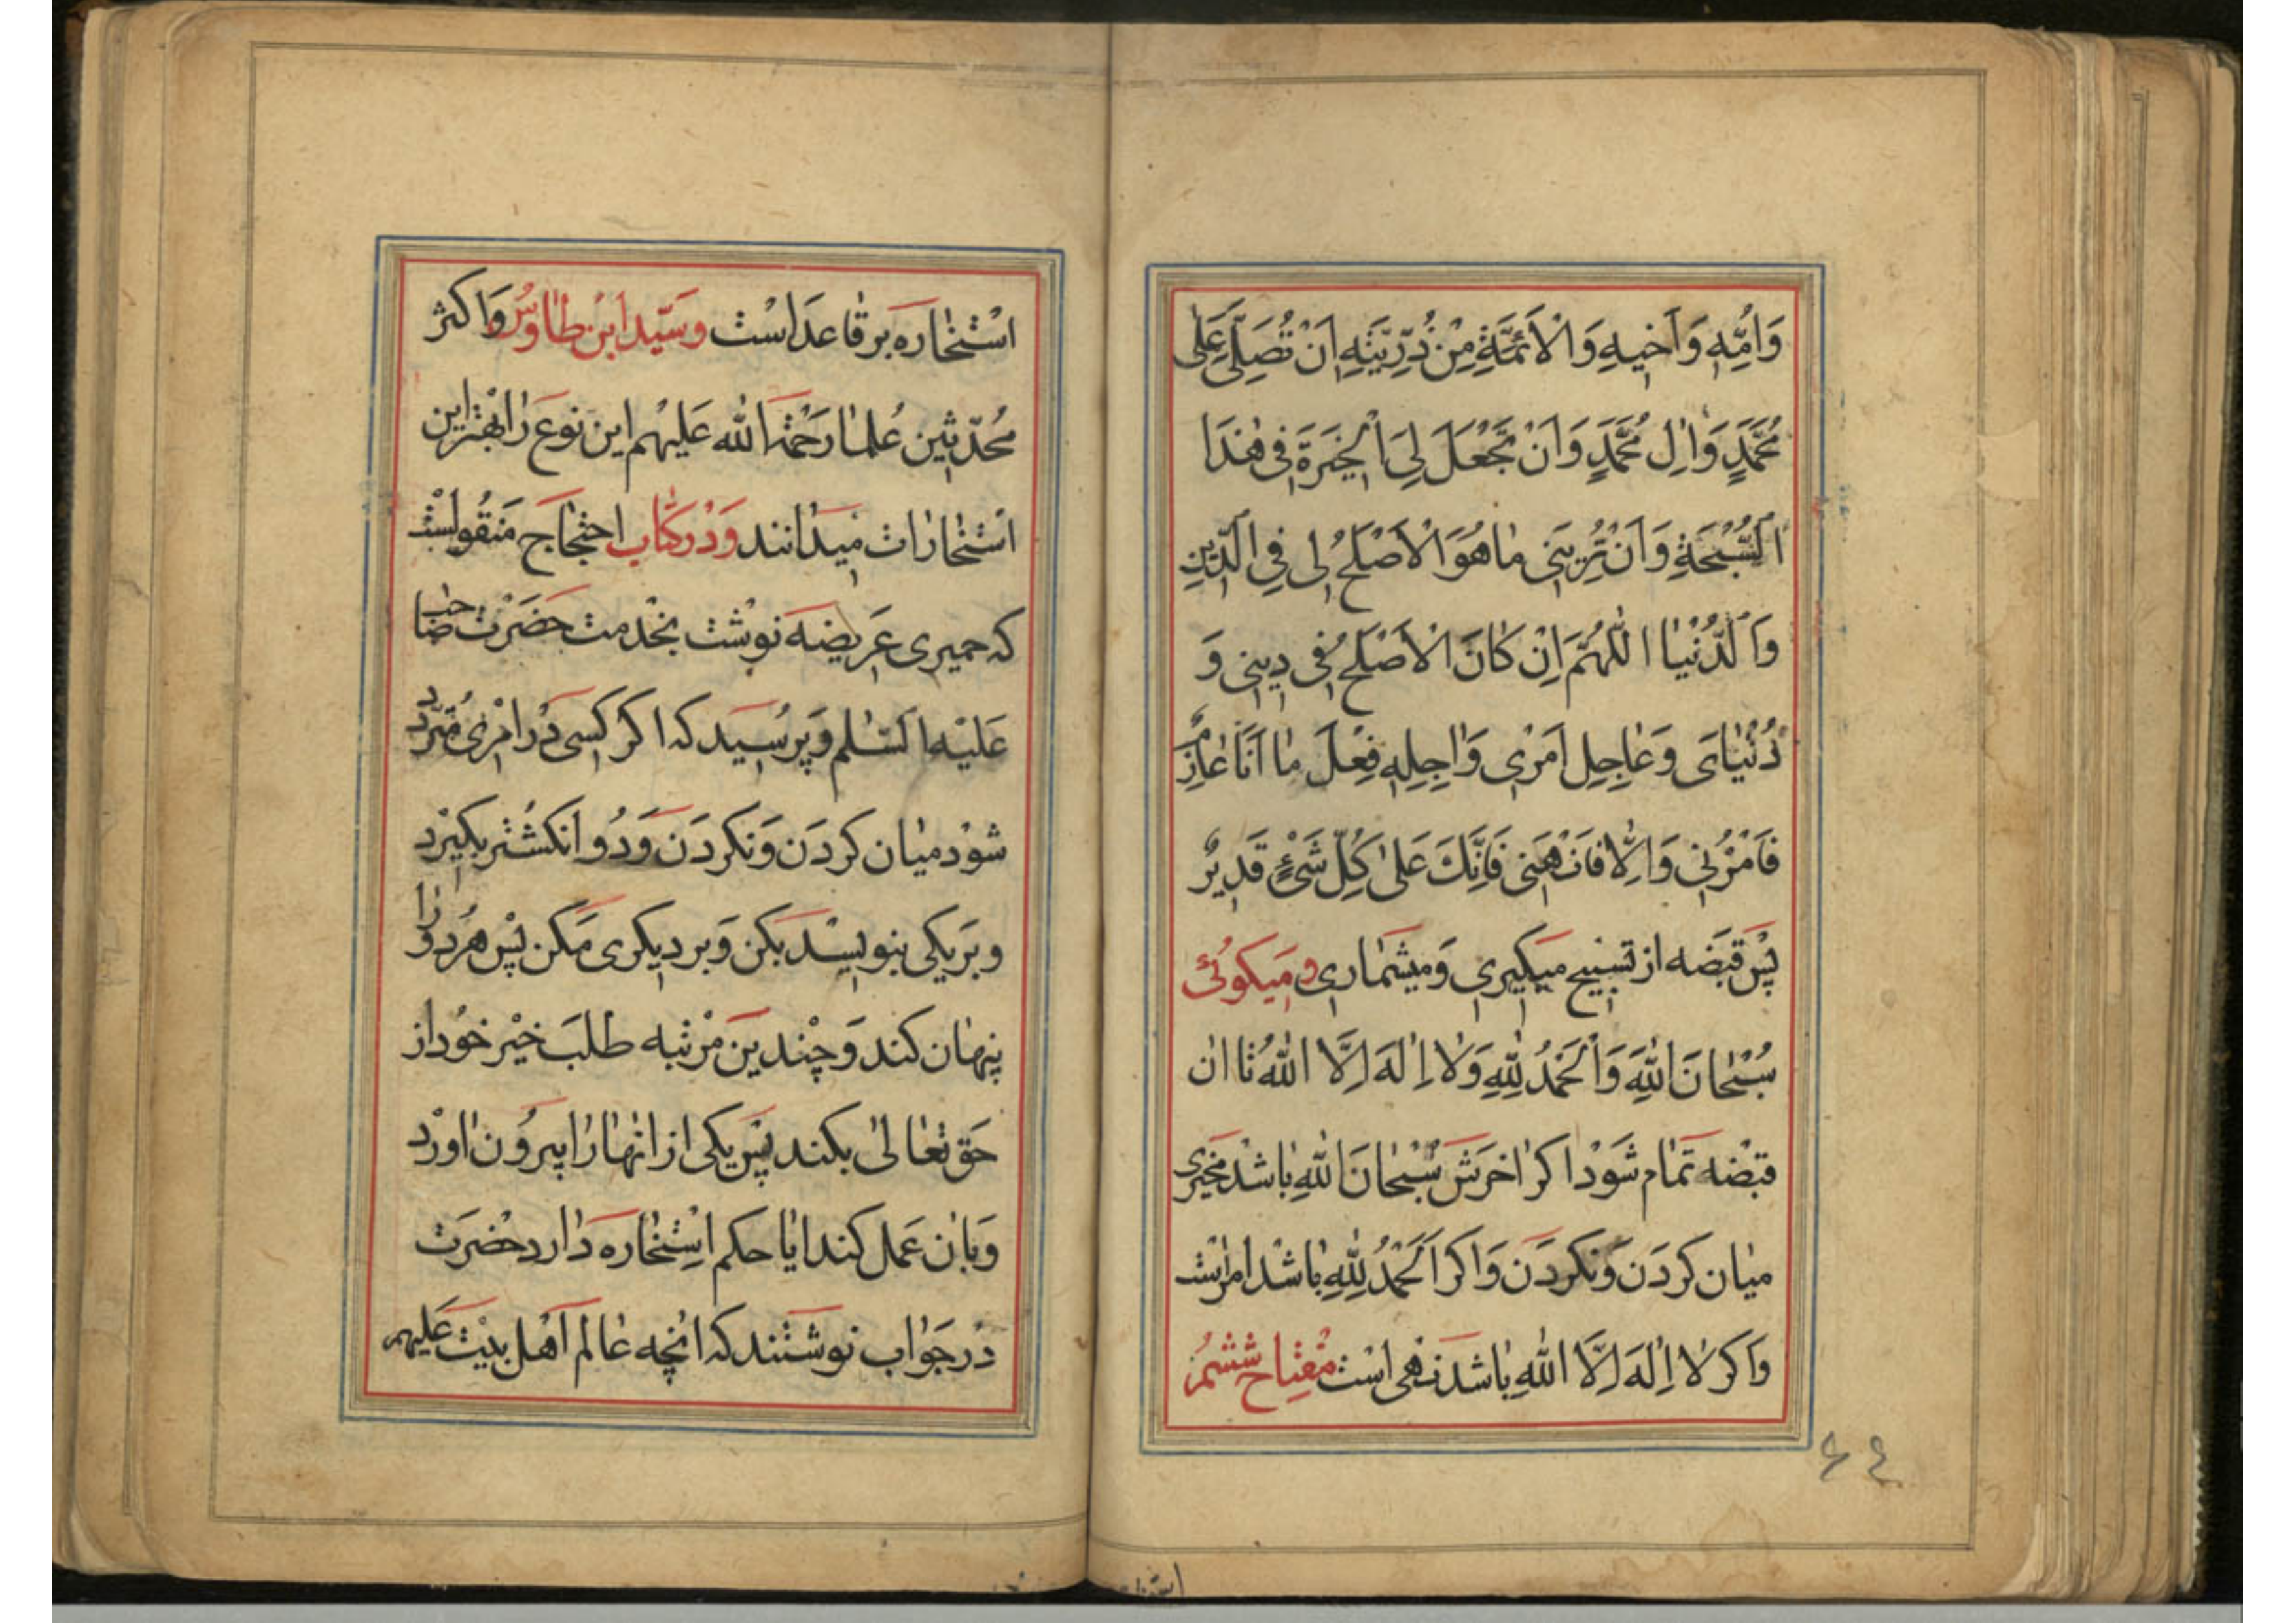 وَاُمِّهِ وَاَخیهِ وَالْاَئِمَّةِ مِنْ ذُرِّیَّتِهِ اَنْ تُصَلِّیَ عَلٰی
مُحَمَّدٍ وَاٰلِ مُحَمَّدٍ وَاَنْ تَجْعَلَ لِیَ الْخِیَرَةَ فی هٰذَا
السُّبْحَةِ وَاَنْ تُرِیَنی مٰا هُوَ الْاَصْلَحُ لی فِی الدّینِ
وَالدُّنْیٰا اللّٰهُمَّ اِنْ کٰانَ الْاَصْلَحُ فی دینی وَ
دُنْیٰایَ وَعٰاجِلِ اَمْری وَاٰجِلِهِ فِعْلَ مٰا اَنَا عٰازِمٌ
فَأمُرْنی وَاِلّٰا فَانْهَنی فَاِنَّكَ عَلیٰ کُلِّ شَیْءٍ قَدیرٌ
پَسْ قَبضَه از تسبیح میکیری وَمیشمٰاری ومَیکوئی
سُبْحٰانَ اللّٰهِ وَالْحَمْدُ لِلّٰهِ وَلٰا اِلٰهَ اِلَّا اللّٰهُ تٰا ان
قبْضَه تَمٰام شَوْد اکر اٰخرَش سُبْحٰانَ اللّٰهِ بٰاشدْ مخیّری
میٰان کردَن وَنکردَن وَاکر اَلْحَمْدُ لِلّٰهِ بٰاشدْ امراست
وَاکر لٰا اِلٰهَ اِلَّا اللّٰهِ بٰاشد نهی اسْت مفْتٰاح ششمُ
٤٤
اسْتخٰارَه برقٰاعدَاسْت وسَیّد ابن طٰاوُسْ وَاکثر
مُحدّثین عُلمٰا رَحْمَةَ اللّٰه عَلیْهم این نوعَ رٰا بهْترَاین
اسْتخٰارٰات میدٰانند وَدْرکتٰاب احتجٰاج مَنقُولسْت
که حمیری عَریضَه نوشْت بخْدمت حَضَرْت صٰاحب
عَلیْه السّلٰم وَپرسُیَد که اکر کسی دَر امْری مُترَدّد
شوْد میٰان کردَن وَنکردَن وَدُو انکشْتر بکیرْد
وبرَیکی بنویسْد بکن وَبر دیکری مَکن پسْ هَردو رٰا
پنهٰان کند وَچنْدین مَرْتبه طلَب خیْر خوُد از
حَق تعٰالیٰ بکند پَس یکی از انهٰا رٰا بیروُن اٰورْد
وَبٰان عَمل کند ایٰا حکم اسْتخٰارَه دٰارد حضْرَت
دْر جَوٰاب نوشتند که انْچه عٰالم اَهْل بیْت عَلیهم